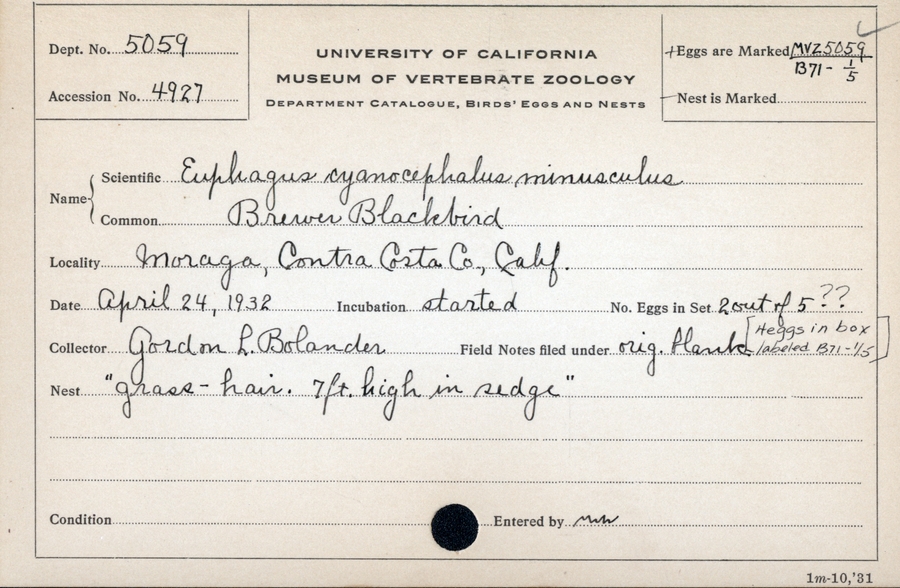 Dept. No. 5059
Accession No. 4927
UNIVERSITY OF CALIFORNIA
MUSEUM OF VERTEBRATE ZOOLOGY
DEPARTMENT CATALOGUE, BIRDS' EGGS AND NESTS
Eggs are Marked MVZ5059
B71-1/5
Nest is Marked
Name
Scientific Euphagus cyanocephalus minusculus
Common Brewer Blackbird
Locality Moraga, Contra Costa Co., Calif.
Date April 24, 1932 Incubation started No. Eggs in Set 2 out of 5 ??
Collector Gordon L. Bolander Field Notes filed under orig. blank
[4 eggs in box
labeled B71-1/5]
Nest "grass - hair. 7 ft. high in sedge"
Condition Entered by
1m-10,'31